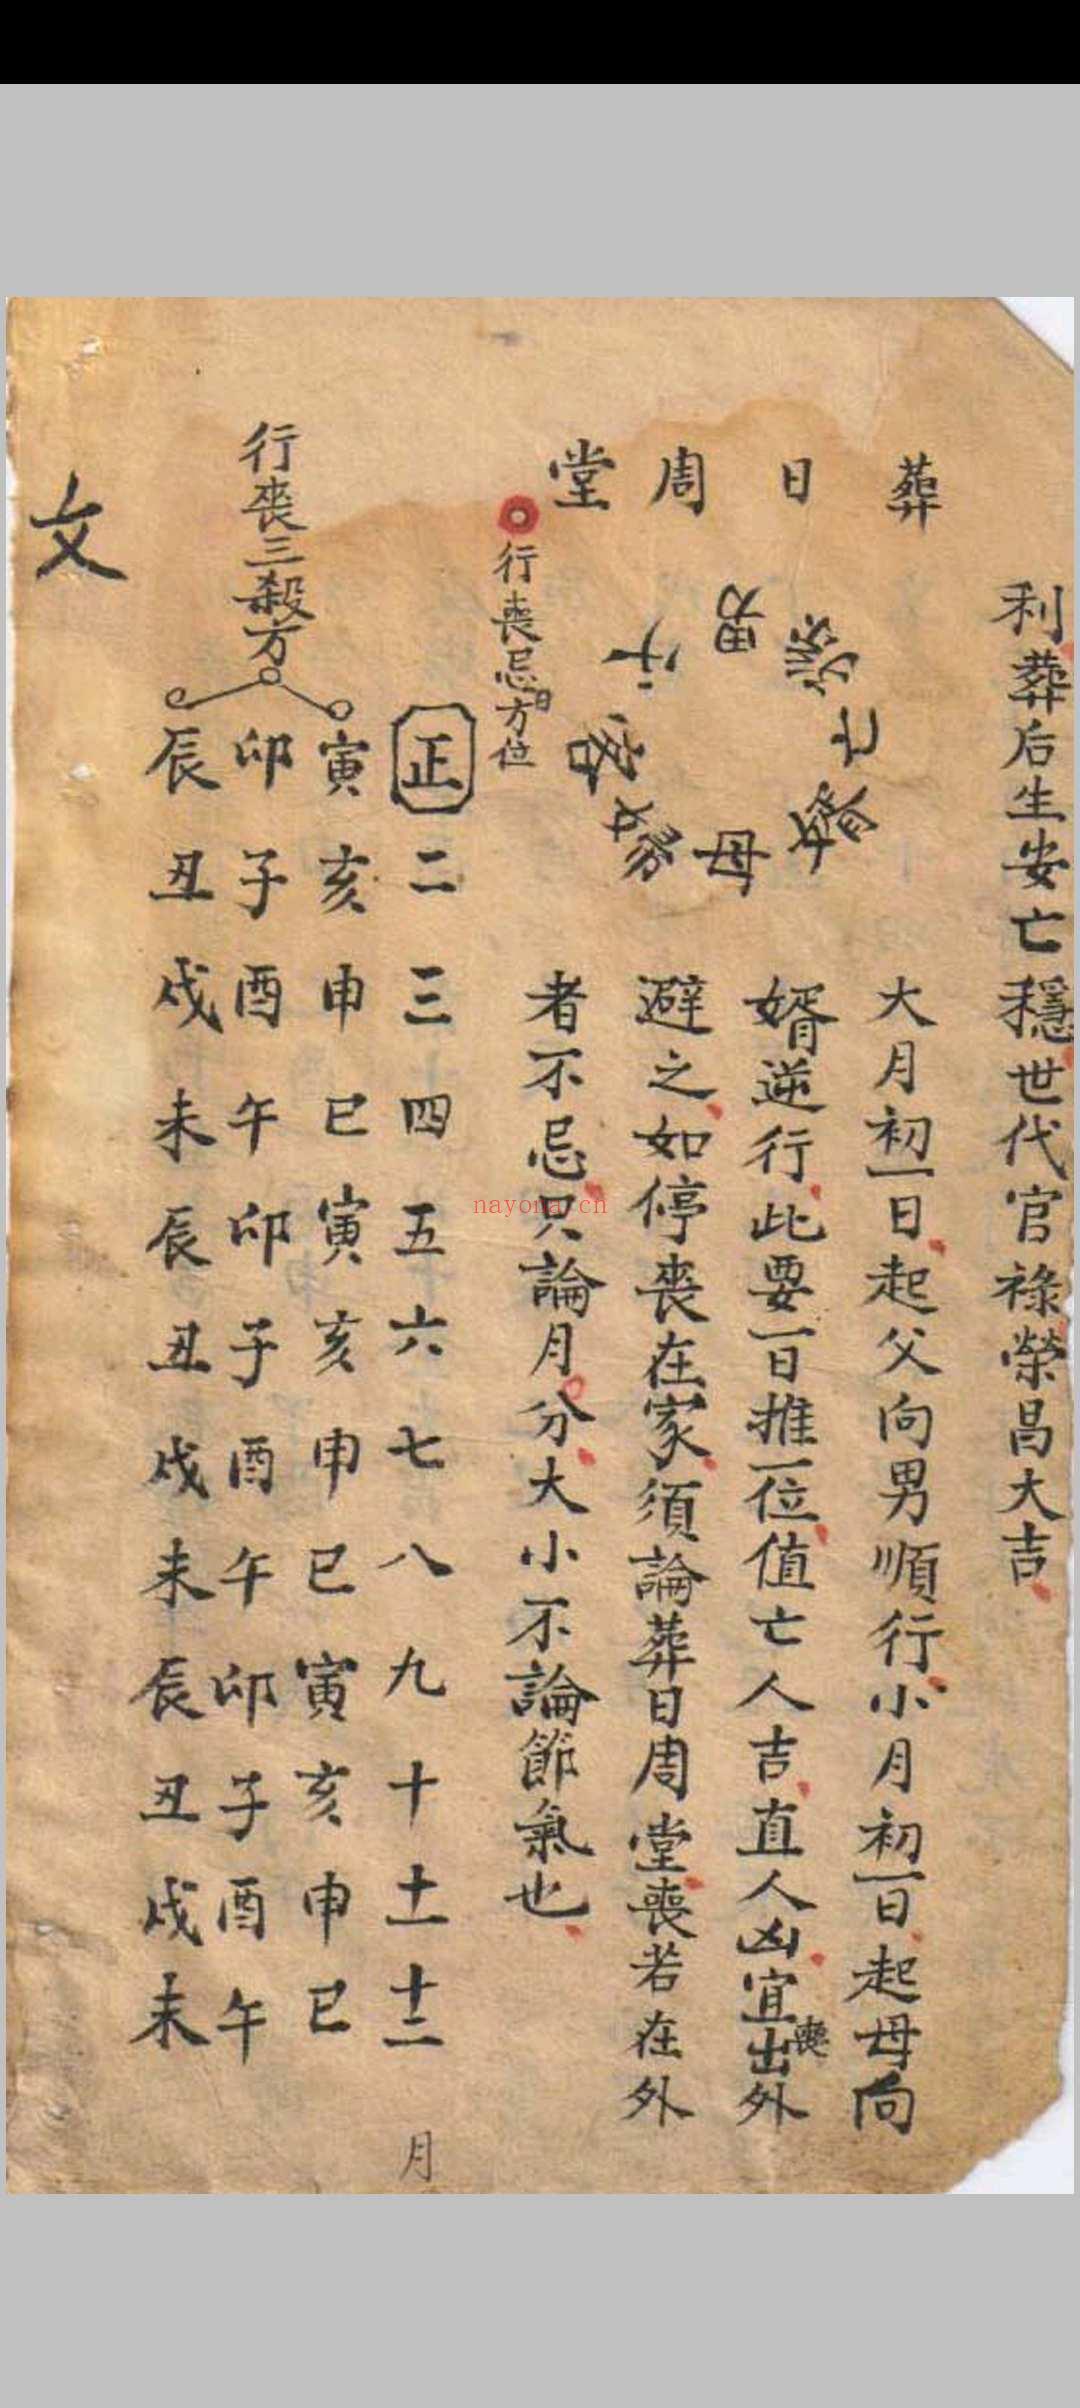 利葬后生安亡穩世代官祿榮昌大吉
葬日周堂
男
亡
婿
母
婦
大月初一日起父向男順行小月初一日起母向
婿逆行此要一日推一位值亡人吉直人凶宜出喪外
避之如停喪在家須論葬日周堂喪若在外
者不忌只論月分大小不論節氣也
行喪忌日方位
正二三四五六七八九十十一十二月
行喪三殺方
寅亥申巳寅亥申巳寅亥申巳
卯子酉午卯子酉午卯子酉午
辰丑戌未辰丑戌未辰丑戌未
文
nayona.cn